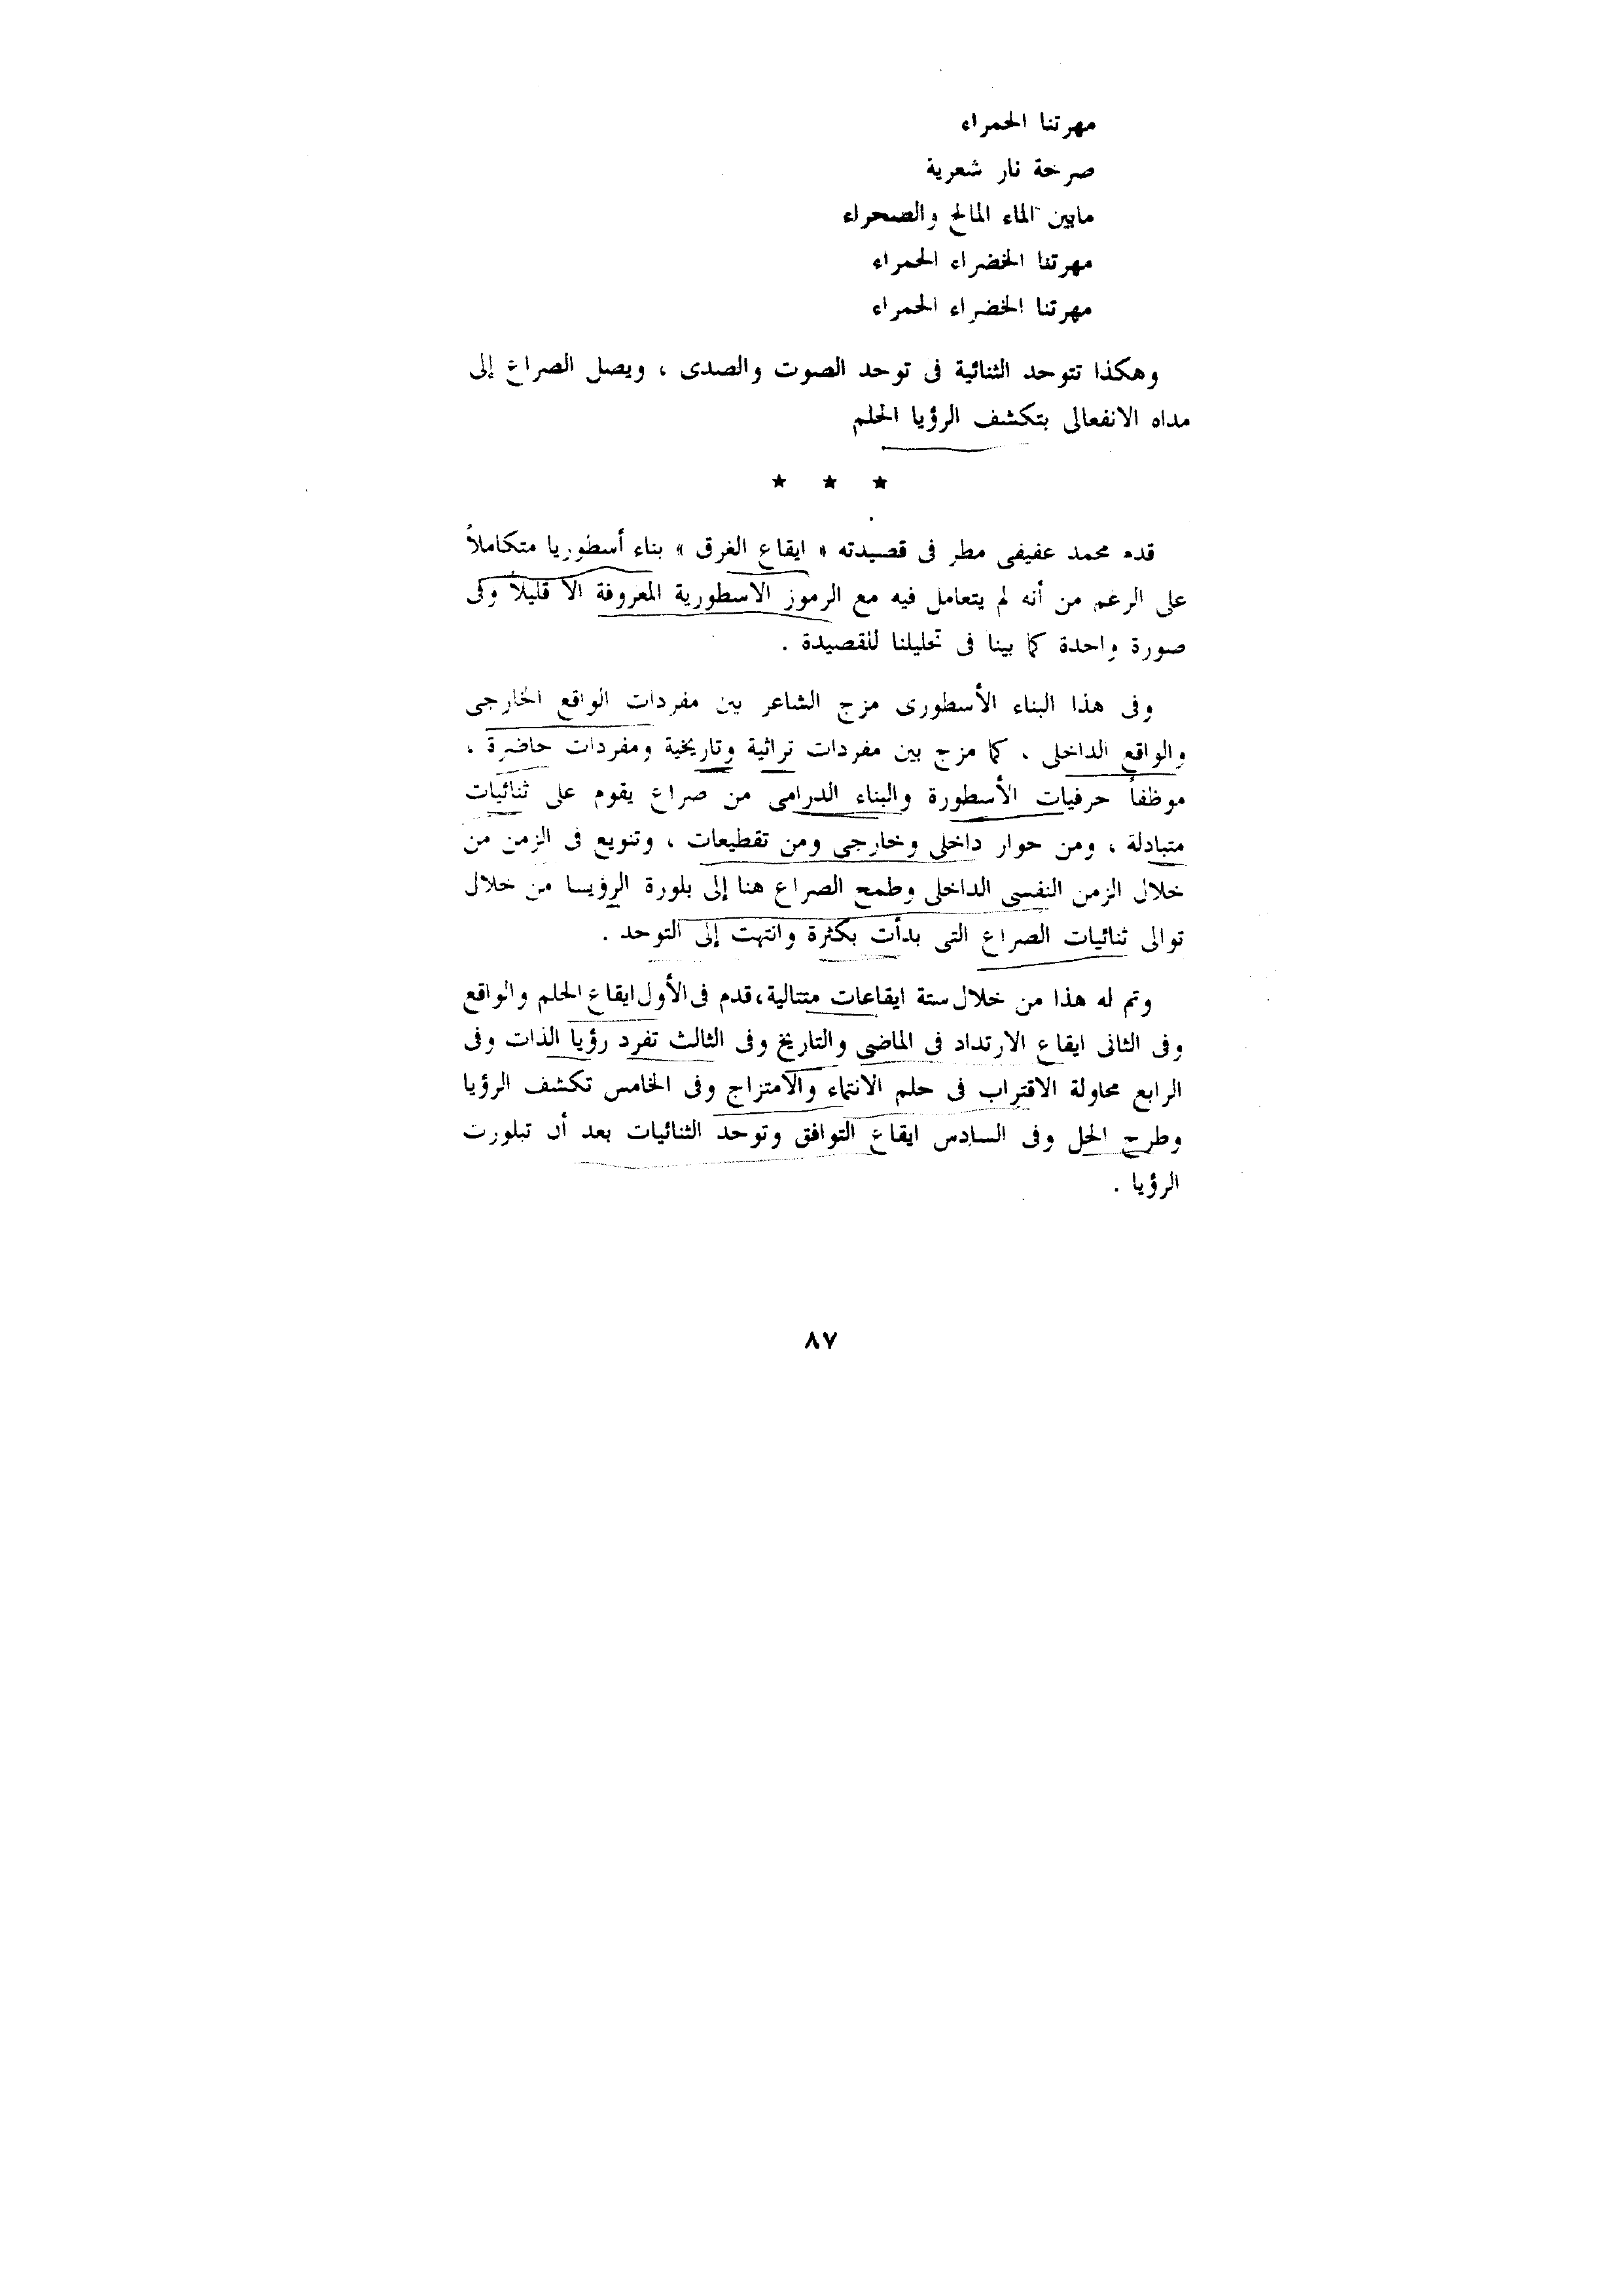 مهرتنا الحمراء
صرخة نار شعرية
مابين الماء المالح والصحراء
مهرتنا الخضراء الحمراء
مهرتنا الخضراء الحمراء
وهكذا تتوحد الثنائية فى توحد الصوت والصدى ، ويصل الصراع إلى
مداه الانفعالى بتكشف الرؤيا الحلم
★ ★ ★
قدم محمد عفيفى مطر فى قصيدته « ايقاع الغرق » بناء أسطوريا متكاملاً
على الرغم من أنه لم يتعامل فيه مع الرموز الاسطورية المعروفة الا قليلاً وفى
صورة واحدة كما بينا فى تحليلنا للقصيدة .
وفى هذا البناء الأسطورى مزج الشاعر بين مفردات الواقع الخارجى
والواقع الداخلى ، كما مزج بين مفردات تراثية وتاريخية ومفردات حاضرة ،
موظفاً حرفيات الأسطورة والبناء الدرامى من صراع يقوم على ثنائيات
متبادلة ، ومن حوار داخلى وخارجى ومن تقطيعات ، وتنويع فى الزمن من
خلال الزمن النفسى الداخلى وطمح الصراع هنا إلى بلورة الرؤيسا من خلال
توالى ثنائيات الصراع التى بدأت بكثرة وانتهت إلى التوحد .
وتم له هذا من خلال ستة ايقاعات متتالية، قدم فى الأول ايقاع الحلم والواقع
وفى الثانى ايقاع الارتداد فى الماضى والتاريخ وفى الثالث تفرد رؤيا الذات وفى
الرابع محاولة الاقتراب فى حلم الانتماء والامتزاج وفى الخامس تكشف الرؤيا
وطرح الحل وفى السادس ايقاع التوافق وتوحد الثنائيات بعد أن تبلورت
الرؤيا .
٨٧